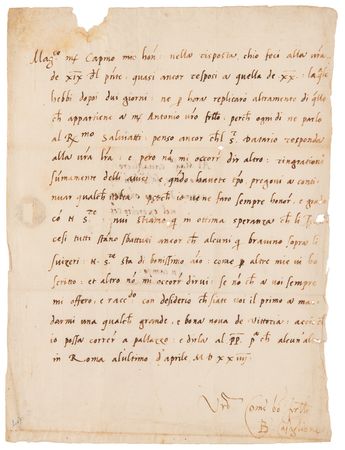 Mag.co mr Capino mio hon: nella risposta chio feci alla vra
de XIX dl pnte: quasi ancor resposi a quella de XX: la qle
hebbi dopoi dui giorni: ne p hora replicarò altramente di qllo
ch appartiene a mr Antonio vro frllo: perch ogni di ne parlo
al R.mo Salviatti: penso ancor chl S.r Datario responda
alla vra lra: e però nō mi occorr dir altro: ringratiovi
sumamente delli avisi: e qndo havete tpo, pregovi a conti
nuar qualch
io ve ne farò sempre honor: e
N. S.re nui stiamo in ottima speranza ch li
cesi tutti stāno sbattuti ancor ch alcuni bravino sopra li
suizeri: N. S.re sta di bonissimo aīo: come p altre mie vi ho
scritto: et altro nō mi occorr dirvi: se nō ch a voi sempre
mi offero, e racc.do con desiderio ch siate voi il primo a man
darmi una qualch grande, e bona nova de Vittoria: acciò ch
io possa correr a palazzo: e dirla al PP. p.a ch alcun altro
in Roma alultimo d'aprile MDXXIIII:
Vro Come bō frllo
B. Castiglione